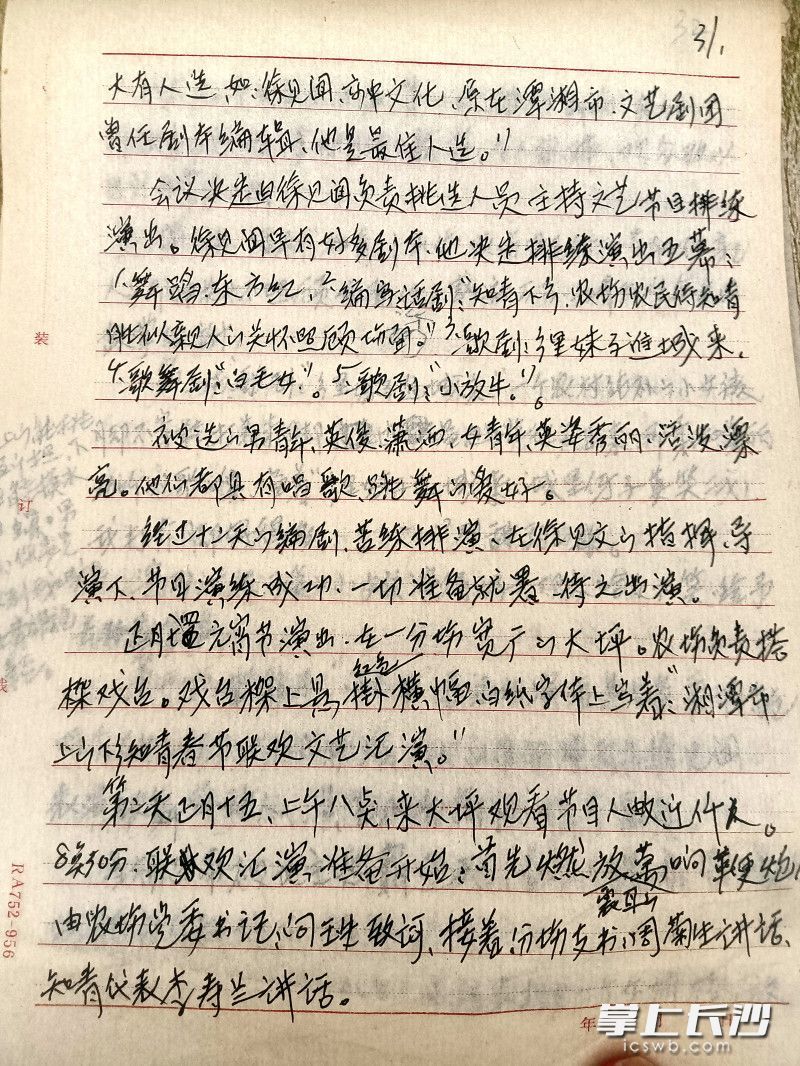 31.
大有人选,如:徐见闻,高中文化,原在潭湘市、文艺剧团
曾任剧本编辑、他是最佳人选。"
会议决定由徐见闻负责挑选人员主持文艺节目排练
演出。徐见闻早有好多剧本,他决定排练演出五幕:
1、舞蹈:东方红,2、编写话剧:"知青下乡,农场农民待知青
胜似亲人的关怀照顾场面。"3、歌剧:乡里妹子进城来,
4、歌舞剧:"白毛女"。5、歌剧:"小放牛。"。
被选的男青年,英俊潇洒,女青年,英姿秀丽,活泼漂
亮。他们都具有唱歌、跳舞的爱好。
经过十二天的编剧,苦练排演、在徐见文的指挥、导
演下,节目演练成功,一切准备就署,待之出演。
正月十五元宵节演出,在一分场宾厅的大坪。农场负责搭
架戏台。戏台架上悬掛红色横幅,白纸字体上写着:"湘潭市
上山下乡知青春节联欢文艺汇演。"
第二天正月十五,上午八点,来大坪观看节目人数近仟人。
8点30分,联欢汇演准备开始:首先燃放震耳的响鞭炮,
由农场党委书记,向玉生致词,接着,分场支书,周菊生讲话、
知青代表李寿兰讲话。
装
订
线
RA752-956
年
掌上长沙
icswb.com